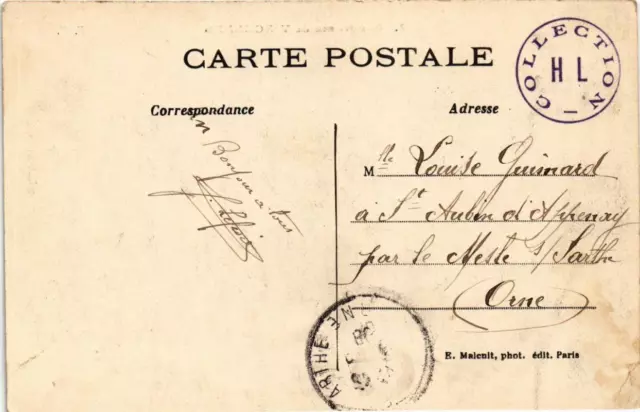 CARTE POSTALE
COLLECTION
H L
Correspondance
Adresse
un Bonjour à tous
Mlle Louise Guimard
à St Aubin d'Appenay
par le Mesle s/Sarthe
Orne
ARTHE
E. Malcuit, phot. édit. Paris